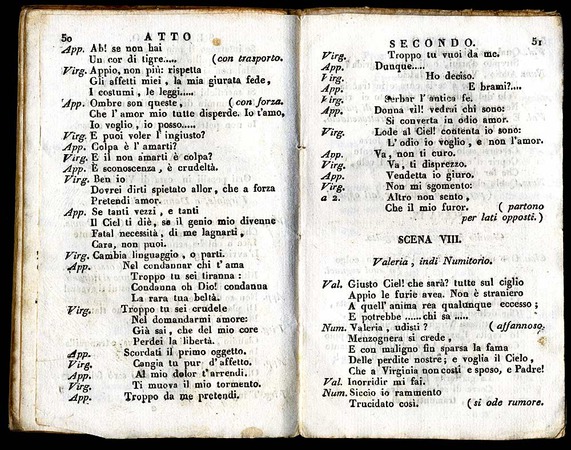 50 ATTO
App. Ah! se non hai
Un cor di tigre..... (con trasporto.
Virg. Appio, non più: rispetta
Gli affetti miei, la mia giurata fede,
I costumi, le leggi.....
App. Ombre son queste, (con forza.
Che l'amor mio tutte disperde. Io t'amo,
Io voglio, io posso.....
Virg. E puoi voler l'ingiusto?
App. Colpa è l'amarti?
Virg. E il non amarti è colpa?
App. E sconoscenza, è crudeltà.
Virg. Ben io
Dovrei dirti spietato allor, che a forza
Pretendi amor.
App. Se tanti vezzi, e tanti
Il Ciel ti diè, se il genio mio divenne
Fatal necessità, di me lagnarti,
Cara, non puoi.
Virg. Cambia linguaggio, o parti.
App. Nel condannar chi t'ama
Troppo tu sei tiranna:
Condanna oh Dio! condanna
La rara tua beltà.
Virg. Troppo tu sei crudele
Nel domandarmi amore:
Già sai, che del mio core
Perdei la libertà.
App. Scordati il primo oggetto.
Virg. Cangia tu pur d'affetto.
App. Al mio dolor t'arrendi.
Virg. Ti muova il mio tormento.
App. Troppo da me pretendi.
SECONDO. 51
Virg. Troppo tu vuoi da me.
App. Dunque.....
Virg. Ho deciso.
App. E brami?....
Virg. Serbar l'antica fe.
App. Donna vil! vedrai chi sono:
Si converta in odio amor.
Virg. Lode al Ciel! contenta io sono:
L'odio io voglio, e non l'amor.
App. Va, non ti curo.
Virg. Va, ti disprezzo.
App. Vendetta io giuro.
Virg. Non mi sgomento:
a 2. Altro non sento,
Che il mio furor. (partono
per lati opposti.)
SCENA VIII.
Valeria, indi Numitorio.
Val. Giusto Ciel! che sarà? tutte sul ciglio
Appio le furie avea. Non è straniero
A quell'anima rea qualunque eccesso;
E potrebbe ......chi sa .....
Num. Valeria, udisti? (affannoso.
Menzognera si crede,
E con maligno fin sparsa la fama
Delle perdite nostre; e voglia il Cielo,
Che a Virginia non costi e sposo, e Padre!
Val. Inorridir mi fai.
Num. Siccio io rammento
Trucidato così. (si ode rumore.